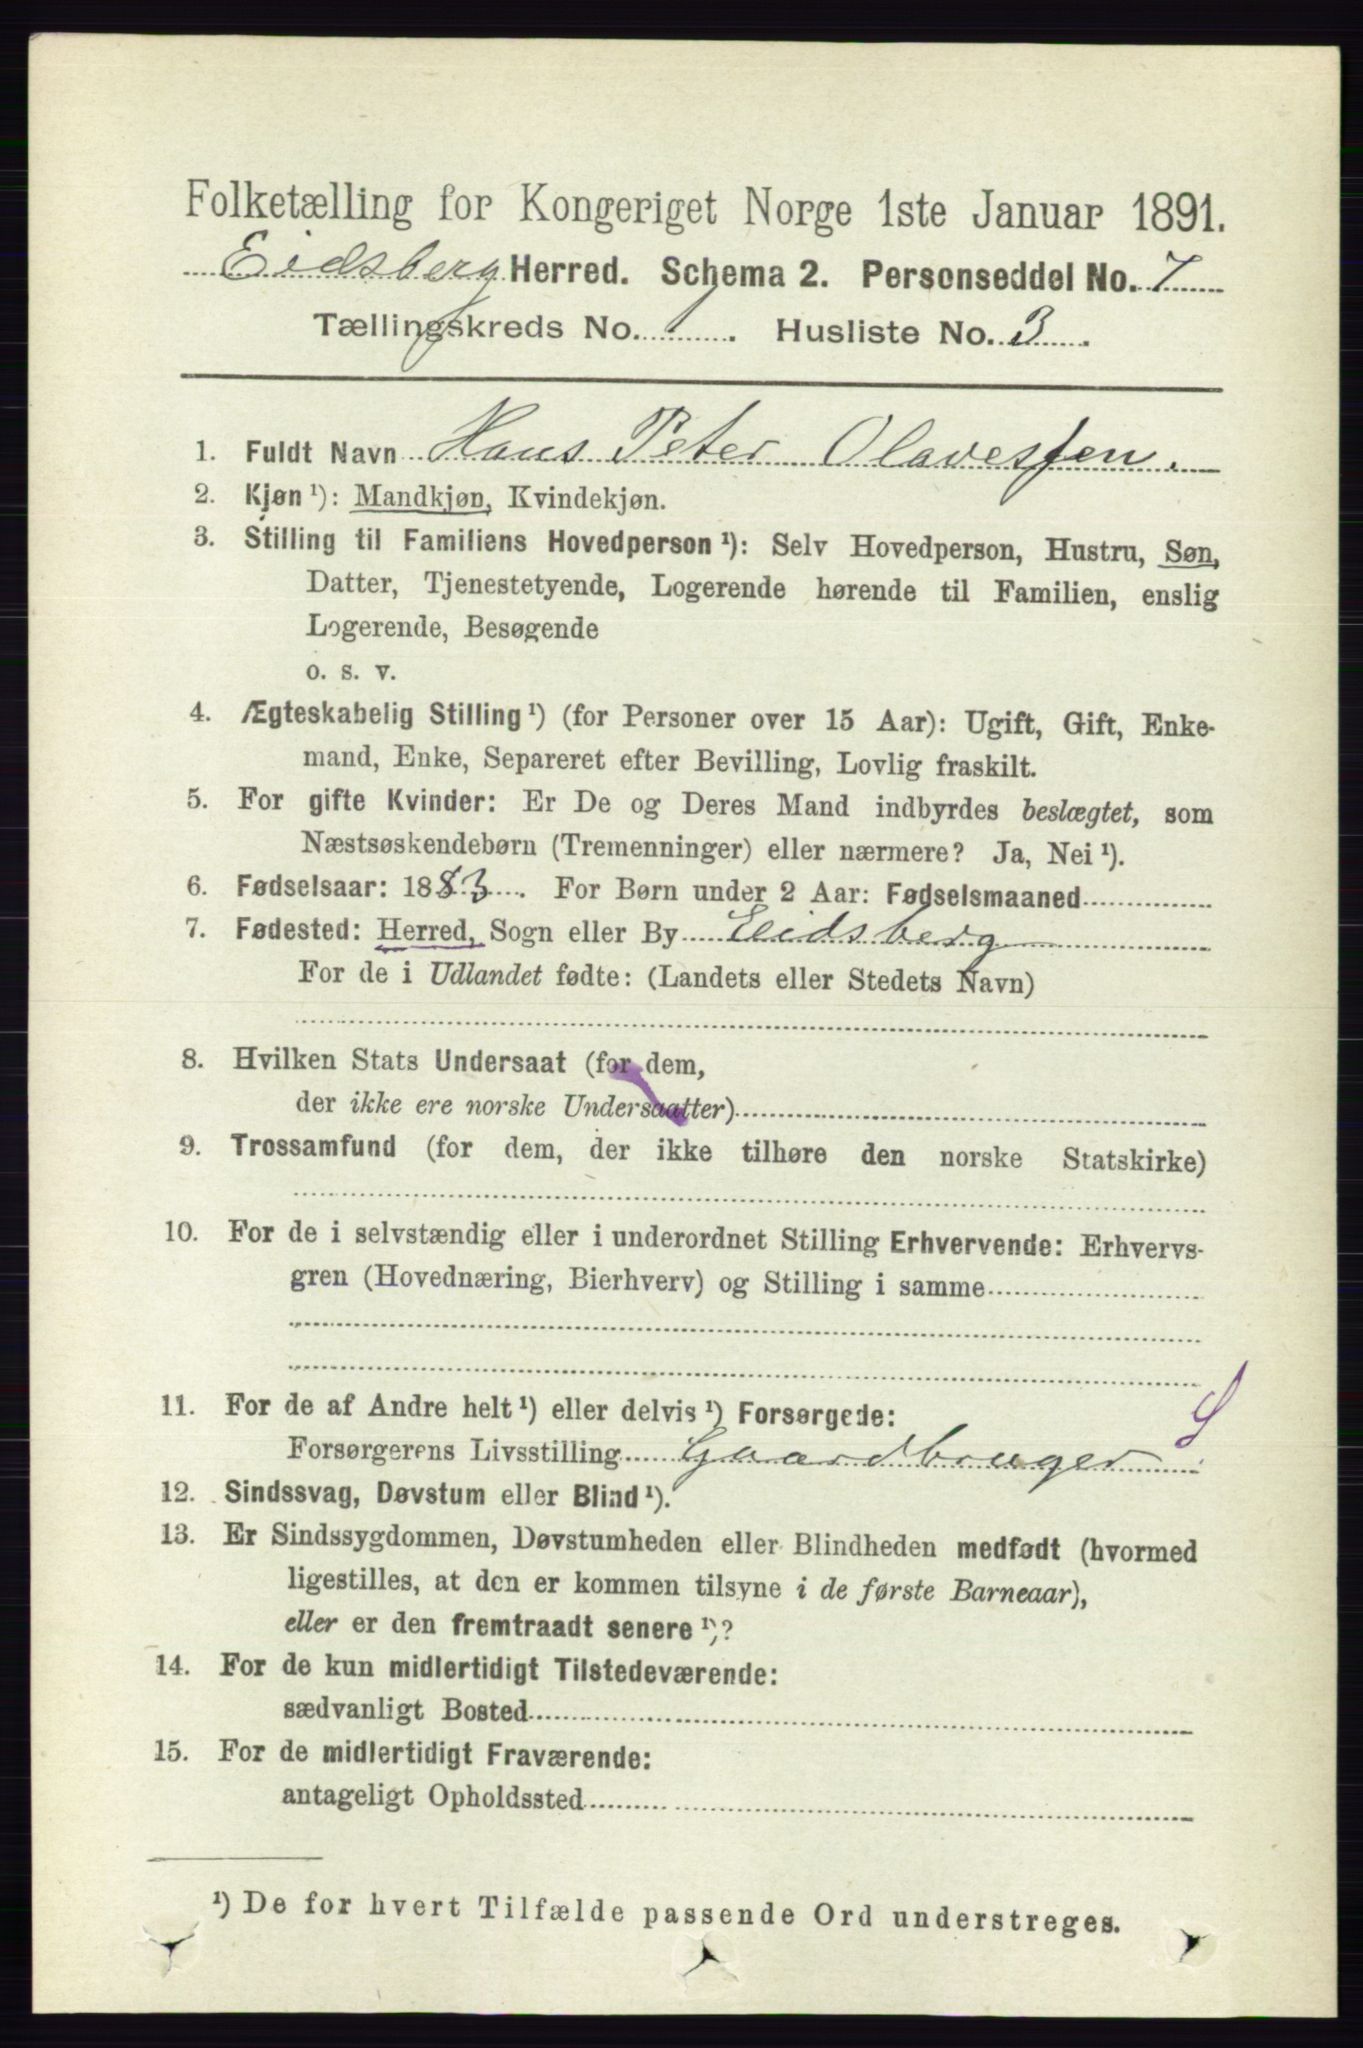 Folketælling for Kongeriget Norge 1ste Januar 1891.
Eidsberg Herred. Schema 2. Personseddel No. 7
Tællingskreds No. 1. Husliste No. 3.
1. Fuldt Navn Hans Peter Olavessen.
2. Kjøn ¹): Mandkjøn, Kvindekjøn.
3. Stilling til Familiens Hovedperson ¹): Selv Hovedperson, Hustru, Søn,
Datter, Tjenestetyende, Logerende hørende til Familien, enslig
Logerende, Besøgende
o. s. v.
4. Ægteskabelig Stilling ¹) (for Personer over 15 Aar): Ugift, Gift, Enke-
mand, Enke, Separeret efter Bevilling, Lovlig fraskilt.
5. For gifte Kvinder: Er De og Deres Mand indbyrdes beslægtet, som
Næstsøskendebørn (Tremenninger) eller nærmere? Ja, Nei ¹).
6. Fødselsaar: 1883. For Børn under 2 Aar: Fødselsmaaned
7. Fødested: Herred, Sogn eller By Eidsberg
For de i Udlandet fødte: (Landets eller Stedets Navn)
8. Hvilken Stats Undersaat (for dem,
der ikke ere norske Undersaatter)
9. Trossamfund (for dem, der ikke tilhøre den norske Statskirke)
10. For de i selvstændig eller i underordnet Stilling Erhvervende: Erhvervs-
gren (Hovednæring, Bierhverv) og Stilling i samme
11. For de af Andre helt ¹) eller delvis ¹) Forsørgede:
Forsørgerens Livsstilling Gaardbruger
12. Sindssvag, Døvstum eller Blind ¹).
13. Er Sindssygdommen, Døvstumheden eller Blindheden medfødt (hvormed
ligestilles, at den er kommen tilsyne i de første Barneaar),
eller er den fremtraadt senere ¹)?
14. For de kun midlertidigt Tilstedeværende:
sædvanligt Bosted
15. For de midlertidigt Fraværende:
antageligt Opholdssted
¹) De for hvert Tilfælde passende Ord understreges.